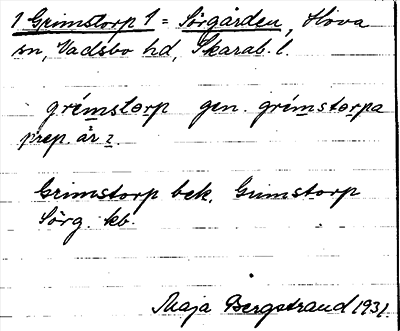 1 Grimstorp 1 = Sörgården, Hova
sn, Vadsbo hd, Skarab. l.
grímstorp gen. grímstorpa
prep. är 2.
Grimstorp bek. Grimstorp
Sörg. kb.
Maja Bergstrand 1931.